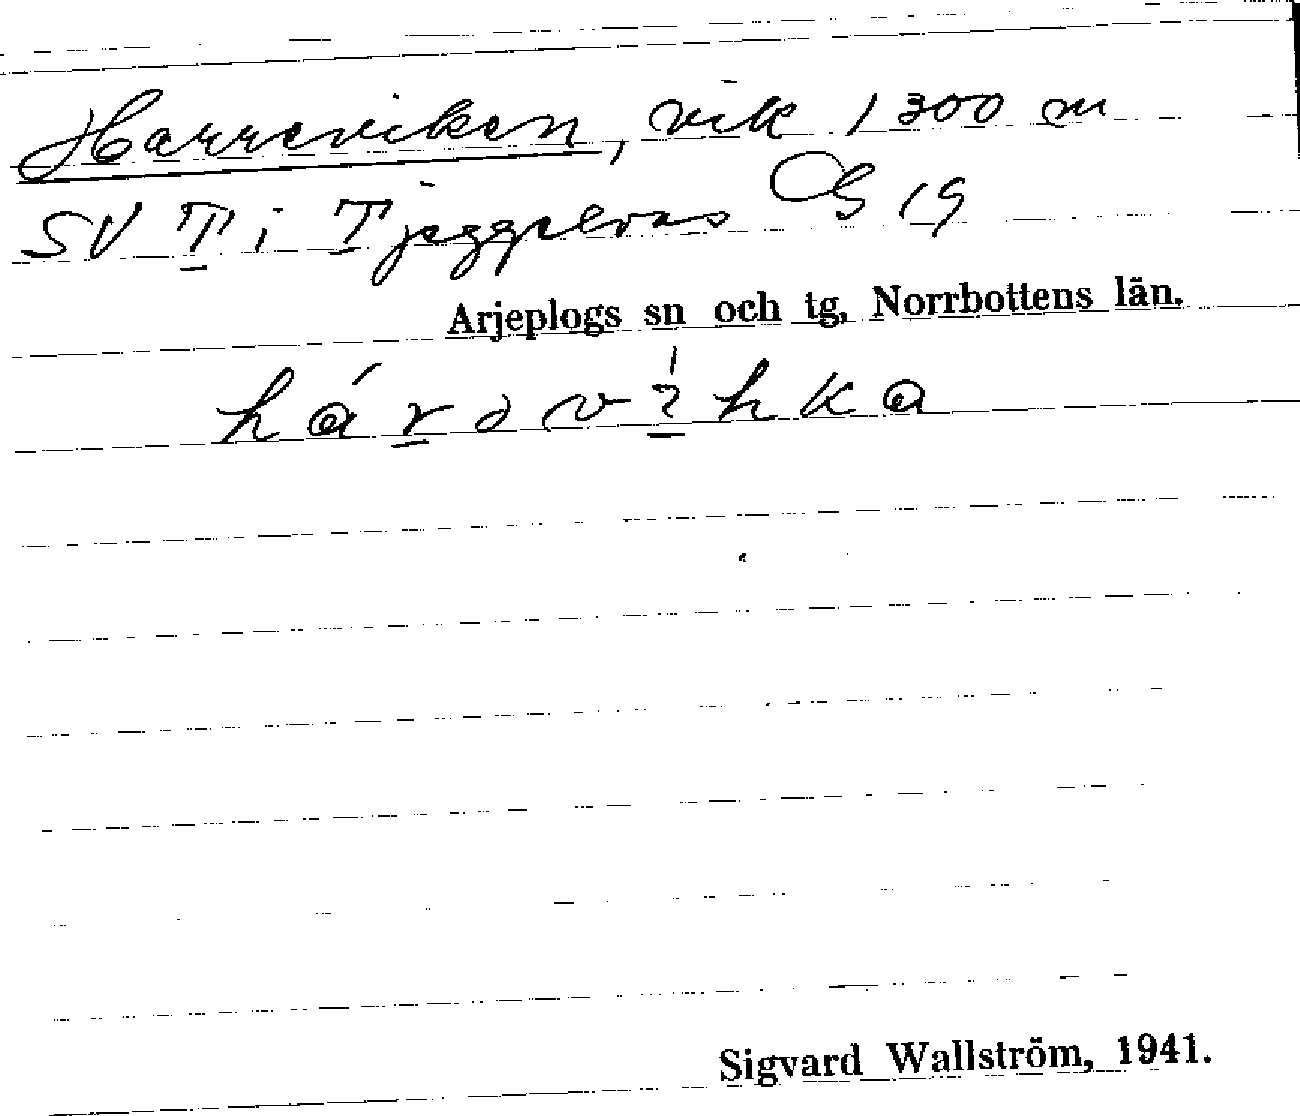 Harreviken, vik 1300 m
SV T i Tjeggelvas G 19
Arjeplogs sn och tg, Norrbottens län.
hárəvìhka
Sigvard Wallström, 1941.